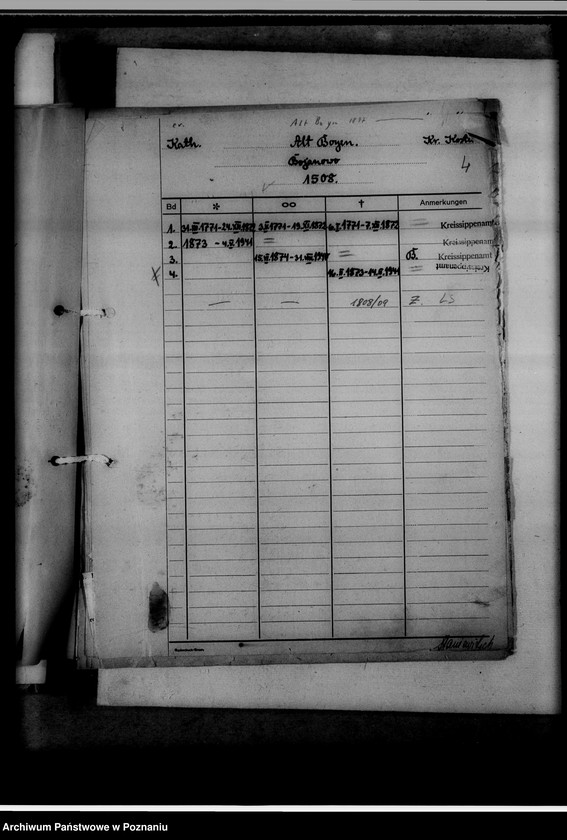 ev. Alt Boyen 1837
Kath. Alt Boyen. Kr. Kosten
Bojanowo 4
1508.
Bd * ∞ † Anmerkungen
1. 31.III.1771-24.VIII.1872 3.II.1771-19.VI.1873 6.I.1771-7.VIII.1872 Kreissippenamt
2. 1873 - 4.II.1941 Kreissippenamt
3. 15.II.1874-31. B. Kreissippenamt
4. 16.II.1873-14.II.1941 Kreissippenamt
— — 1808/09 Z. LS
Archiwum Państwowe w Poznaniu